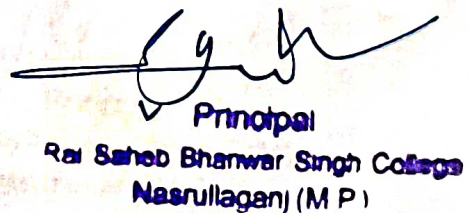 Principal
Rai Saheb Bhanwar Singh College
Nasrullaganj (M P)